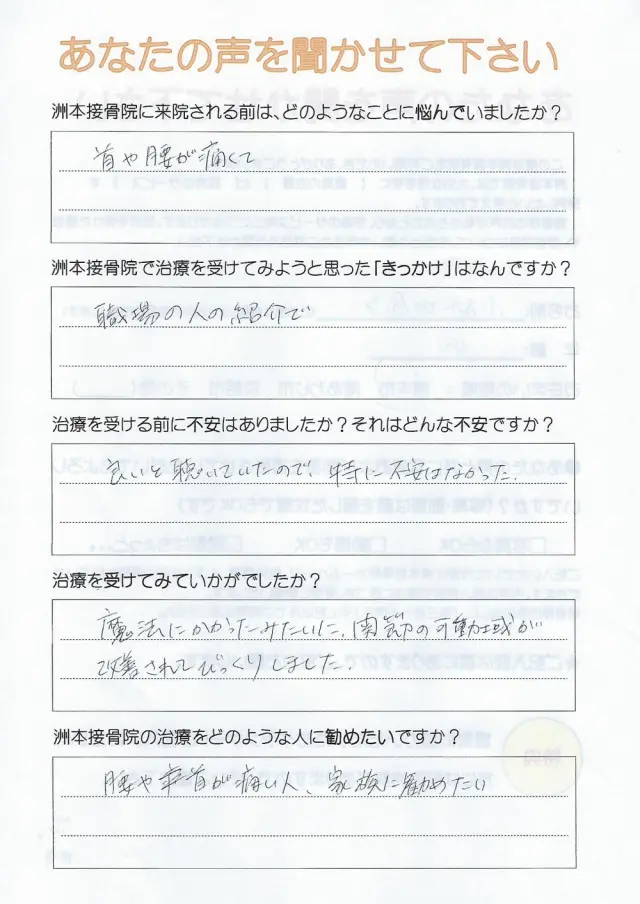 あなたの声を聞かせて下さい
洲本接骨院に来院される前は、どのようなことに悩んでいましたか?
首や腰が痛くて
洲本接骨院で治療を受けてみようと思った「きっかけ」はなんですか?
職場の人の紹介で
治療を受ける前に不安はありましたか?それはどんな不安ですか?
良いと聴いていたので、特に不安はなかった.
治療を受けてみていかがでしたか?
魔法にかかったみたいに、関節の可動域が
改善されてびっくりしました.
洲本接骨院の治療をどのような人に勧めたいですか?
腰や首が痛い人、家族に勧めたい